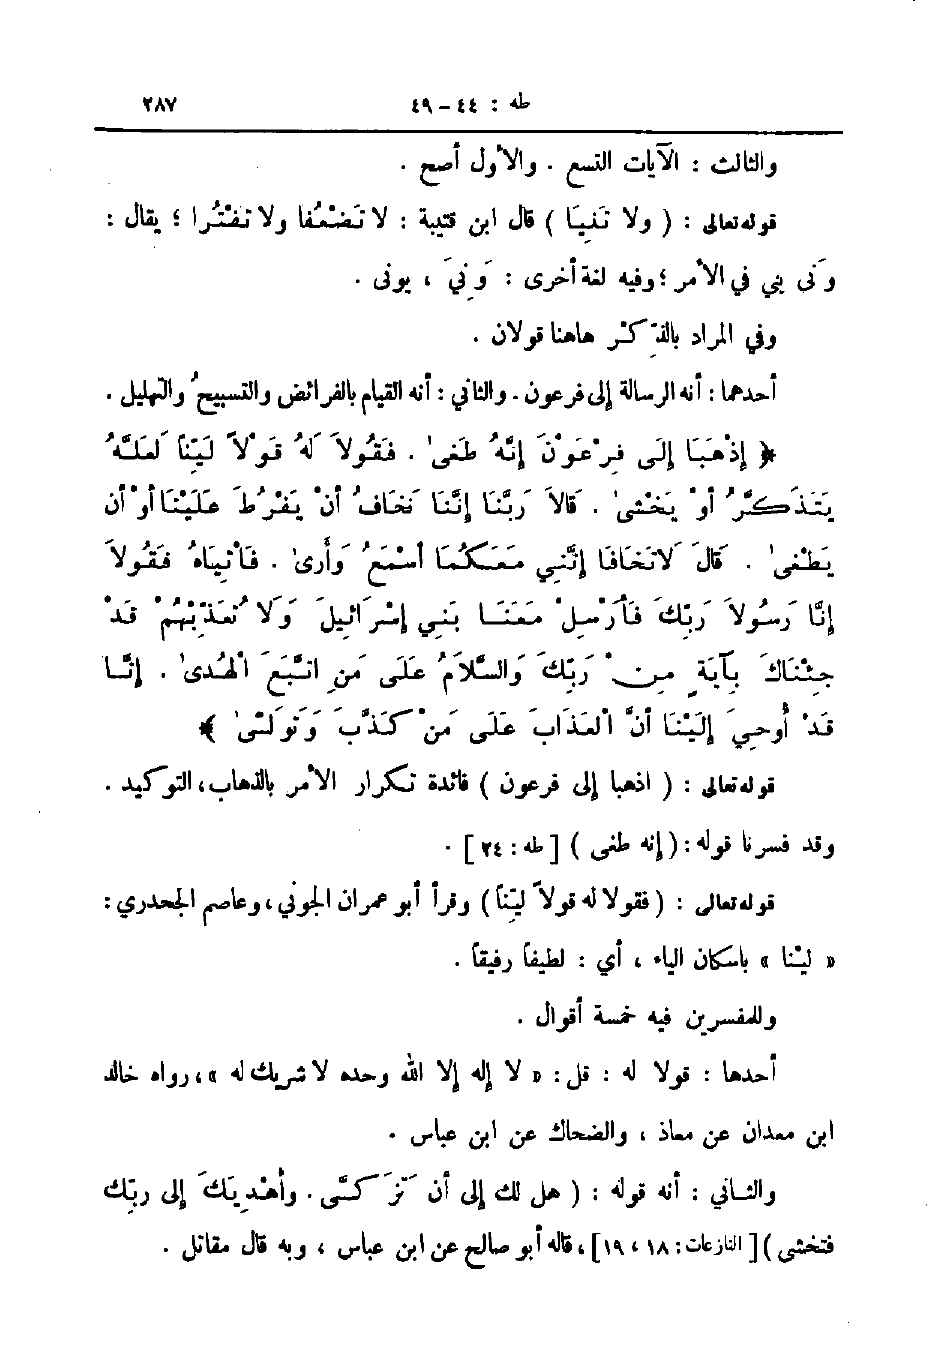 طه : ٤٤ – ٤٩ ٢٨٧
والثالث : الآيات التسع . والأول أصح .
قوله تعالى : ( ولا تَنِيَا ) قال ابن قتيبة : لا تَضْعُفا ولا تفْتُرا ؛ يقال :
وَنَى يني في الأمر ؛ وفيه لغة أخرى : وَنِيَ ، يونى .
وفي المراد بالذِّكْر هاهنا قولان .
أحدهما : أنه الرسالة إلى فرعون . والثاني : أنه القيام بالفرائض والتسبيحُ والتهليل .
﴿ إِذْهَبَا إِلَى فِرْعَوْنَ إِنَّهُ طَغَىٰ . فَقُولَا لَهُ قَوْلاً لَيِّناً لَعَلَّهُ
يَتَذَكَّرُ أَوْ يَخْشَىٰ . قَالَا رَبَّنَا إِنَّنَا نَخَافُ أَنْ يَفْرُطَ عَلَيْنَا أَوْ أَن
يَطْغَىٰ . قَالَ لَاتَخَافَا إِنَّنِي مَعَكُمَا أَسْمَعُ وَأَرَىٰ . فَأْتِيَاهُ فَقُولَا
إِنَّا رَسُولَا رَبِّكَ فَأَرْسِلْ مَعَنَا بَنِي إِسْرَائِيلَ وَلَا تُعَذِّبْهُمْ قَدْ
جِئْنَاكَ بِآيَةٍ مِنْ رَبِّكَ وَالسَّلَامُ عَلَى مَنِ اتَّبَعَ الْهُدَىٰ . إِنَّا
قَدْ أُوحِيَ إِلَيْنَا أَنَّ الْعَذَابَ عَلَى مَنْ كَذَّبَ وَتَوَلَّىٰ ﴾
قوله تعالى : ( اذهبا إلى فرعون ) فائدة تكرار الأمر بالذهاب، التوكيد .
وقد فسرنا قوله : ( إنه طغى ) [ طه : ٢٤ ] .
قوله تعالى : ( فقولا له قولاً ليّناً ) وقرأ أبو عمران الجوني، وعاصم الجحدري :
« ليْنا » باسكان الياء ، أي : لطيفاً رفيقاً .
وللمفسرين فيه خمسة أقوال .
أحدها : قولا له : قل : « لا إله إلا الله وحده لا شريك له »، رواه خالد
ابن معدان عن معاذ ، والضحاك عن ابن عباس .
والثاني : أنه قوله : ( هل لك إلى أن تَزَكَّى . وأَهْدِيَكَ إلى ربِّك
فتخشى ) [ النازعات : ١٨ ، ١٩ ] ، قاله أبو صالح عن ابن عباس ، وبه قال مقاتل .